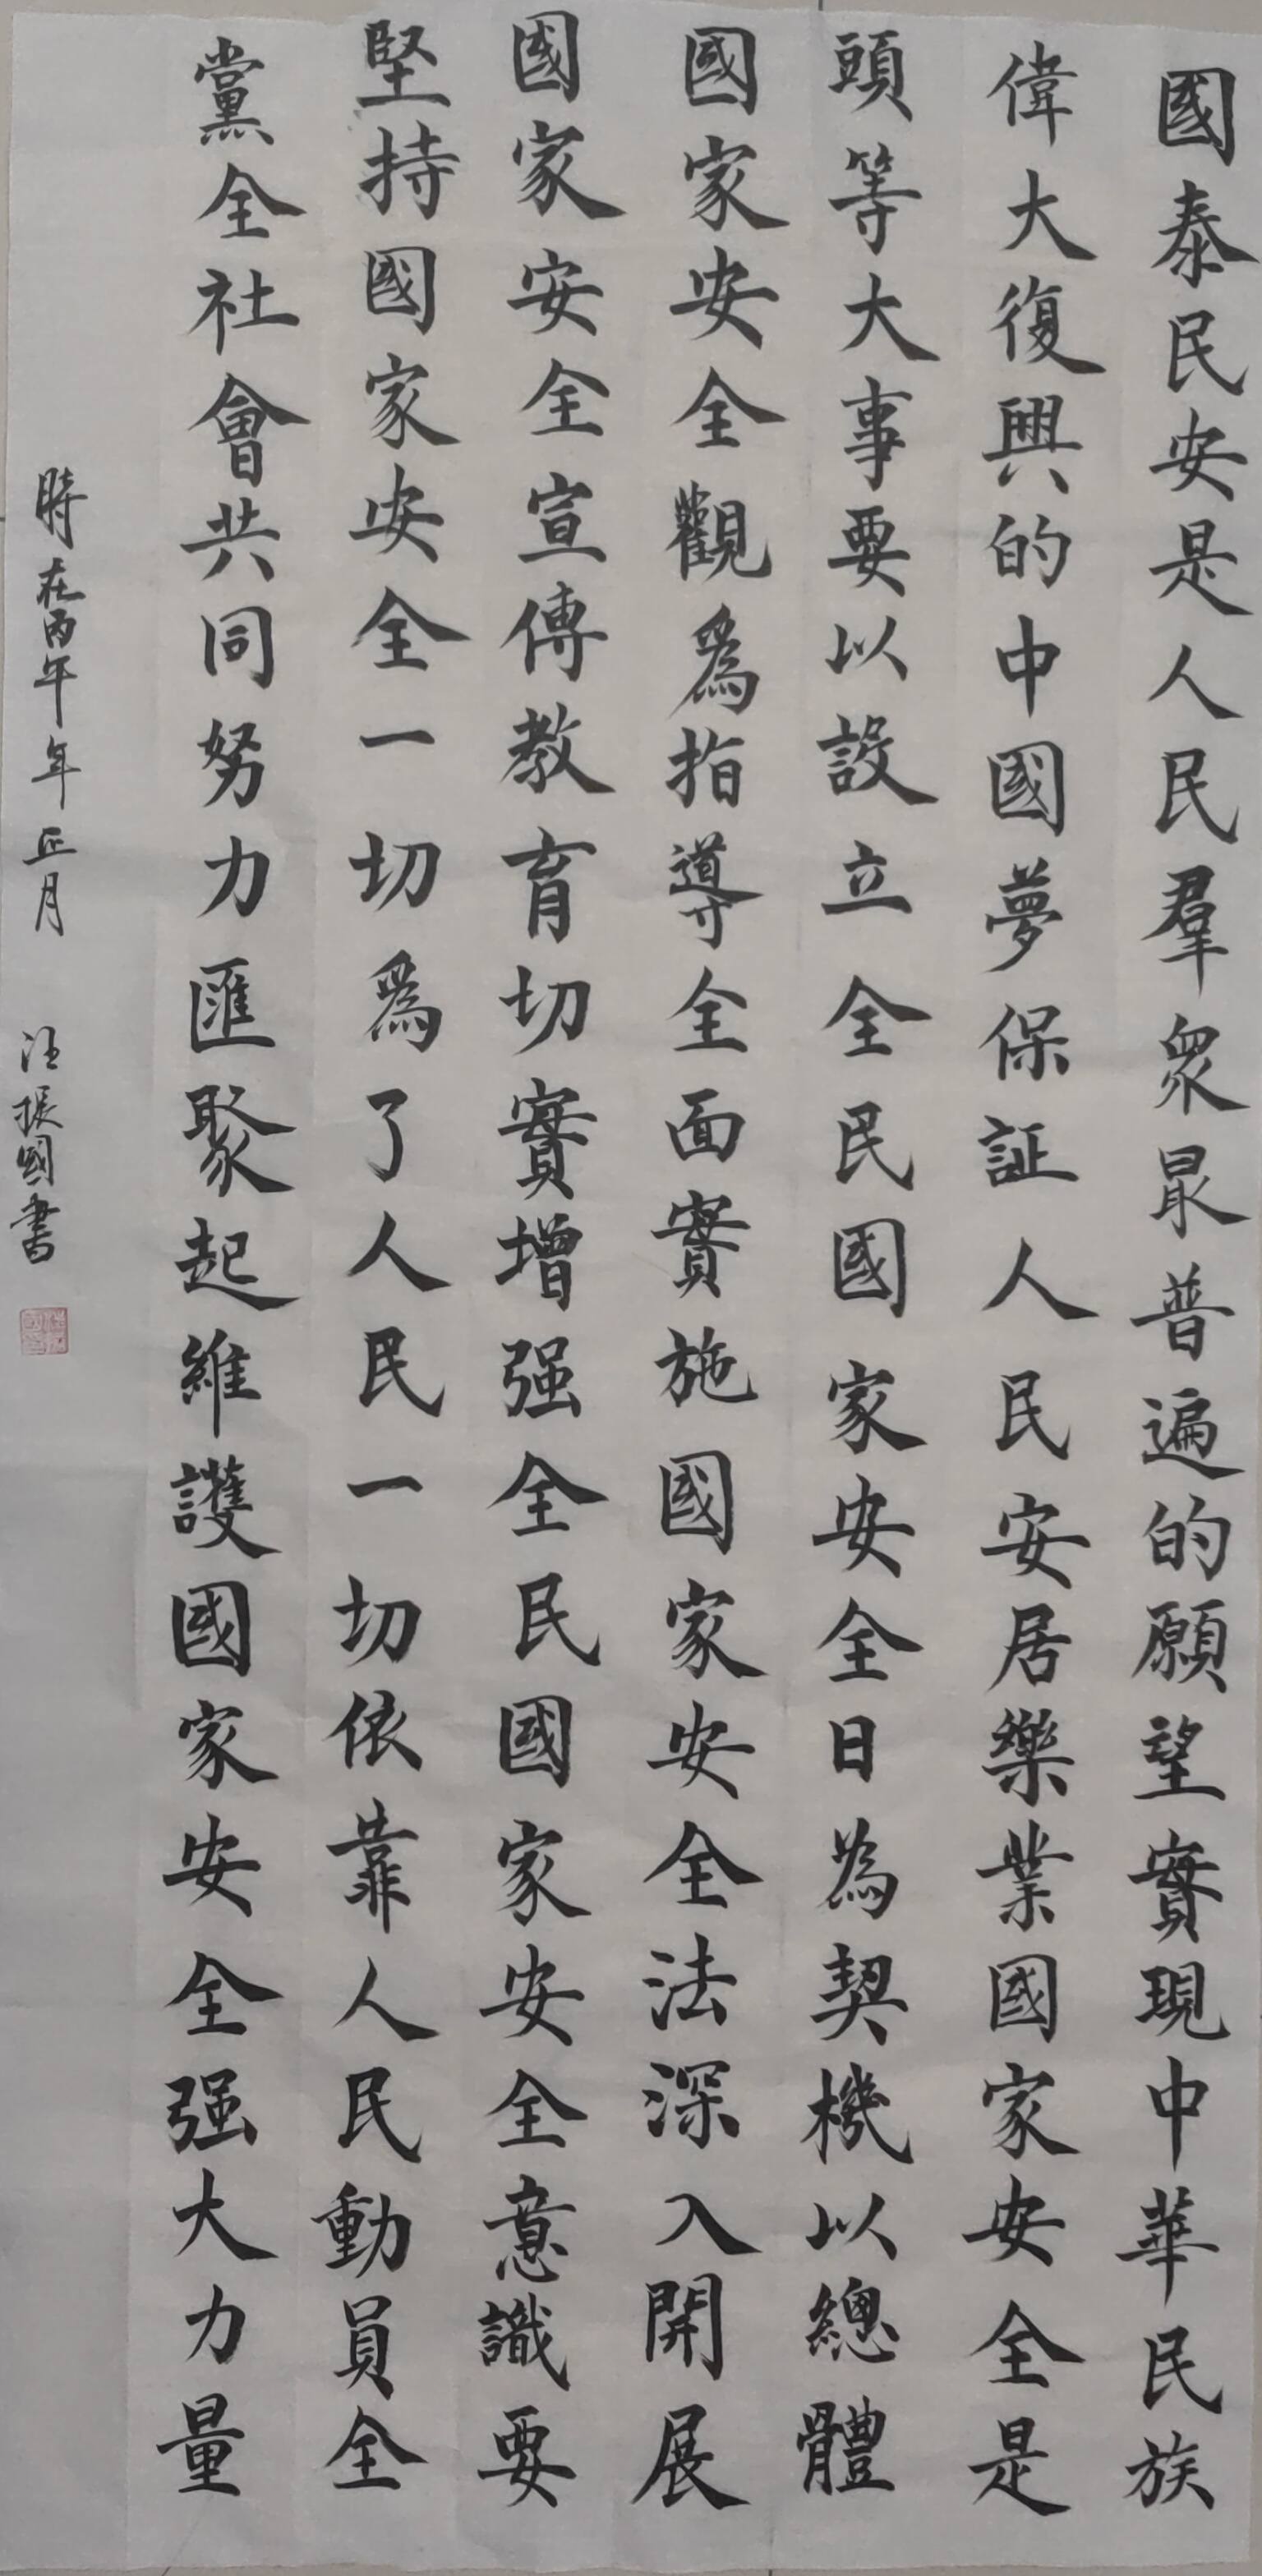 國泰民安是人民羣衆最普遍的願望實現中華民族
偉大復興的中國夢保証人民安居樂業國家安全是
頭等大事要以設立全民國家安全日為契機以總體
國家安全觀爲指導全面實施國家安全法深入開展
國家安全宣傳教育切實增强全民國家安全意識要
堅持國家安全一切爲了人民一切依靠人民動員全
黨全社會共同努力匯聚起維護國家安全强大力量
時在丙午年正月 汪振國書